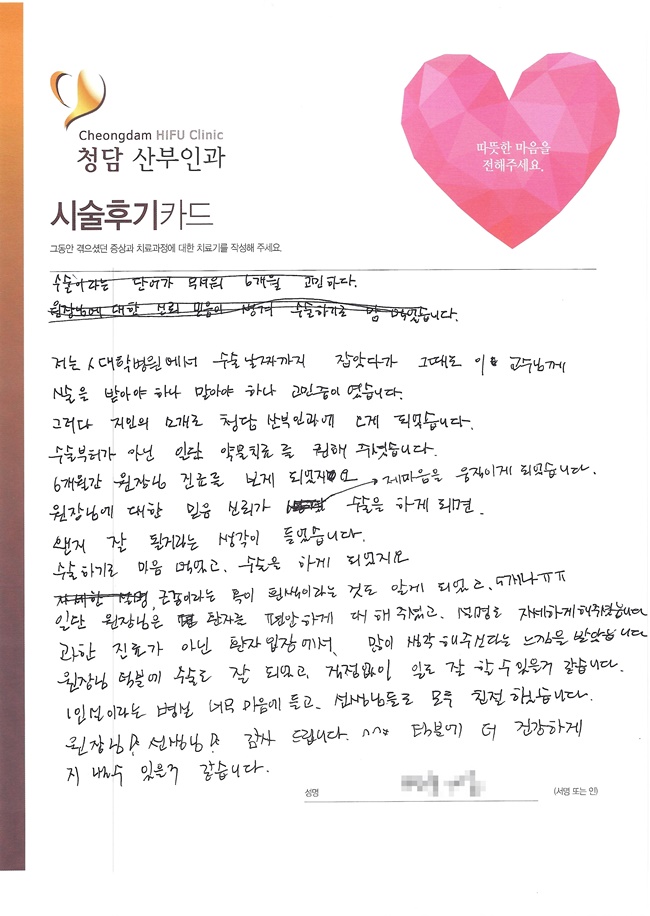 Cheongdam HIFU Clinic
청담 산부인과
따뜻한 마음을
전해주세요.
시술후기카드
그동안 겪으셨던 증상과 치료과정에 대한 치료기를 작성해 주세요.
수술이라는 단어가 무서워 6개월 고민하다.
원장님에 대한 신뢰 믿음이 생겨 수술하기로 맘 먹었습니다.
저는 S대학병원에서 수술날짜까지 잡았다가 그때도 이 교수님께
수술을 받아야 하나 말아야 하나 고민중이였습니다.
그러다 지인의 소개로 청담 산부인과에 오게 되었습니다.
수술부터가 아닌 일단 약물치료를 권해 주셨습니다.
6개월간 원장님 진료를 보게 되었지요 제마음을 움직이게 되었습니다.
원장님에 대한 믿음 신뢰가 수술을 하게 되면
왠지 잘 될거라는 생각이 들었습니다.
수술하기로 마음 먹었고, 수술을 하게 되었지요
자세한 설명, 근종이라는 혹이 평생이라는 것도 알게 되었고, 5개나 ㅠㅠ
일단 원장님은 환자를 편안하게 대해 주셨고, 설명도 자세하게해주셨습니다
과한 진료가 아닌 환자입장에서, 많이 생각해주신다는 느낌을 받았습니다
원장님 덕분에 수술도 잘 되었고, 걱정없이 일도 잘 할 수 있을거 같습니다.
1인실이라는 병실 너무 마음에 들고, 선생님들도 모두 친절하셨습니다.
원장님 선생님 감사 드립니다. ^^ 덕분에 더 건강하게
지낼수 있을거 같습니다.
성명
(서명 또는 인)